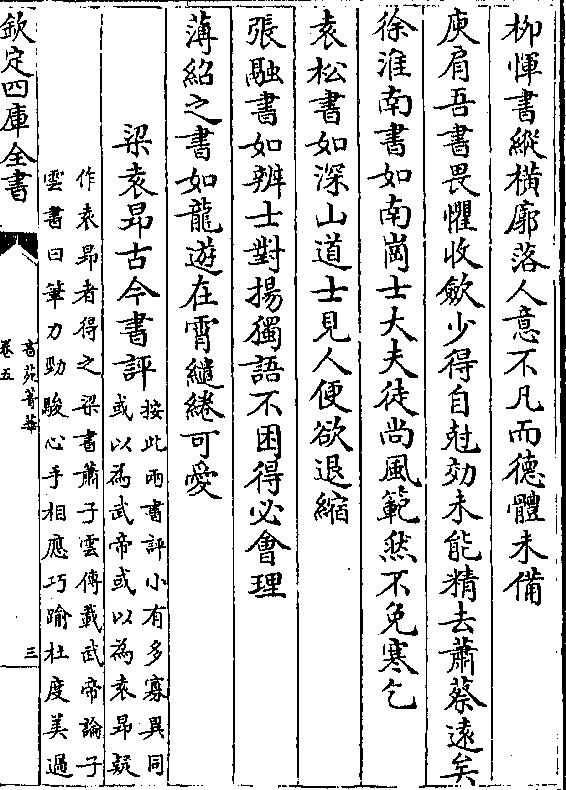 柳惲書縱橫廓落人意不凡而德體未備
庾肩吾書畏懼收斂少得自尅効未能精去蕭蔡遠矣
徐淮南書如南崗士大夫徒尚風範然不免寒乞
袁松書如深山道士見人便欲退縮
張融書如辨士對揚獨語不困得必會理
薄紹之書如龍遊在霄繾綣可愛
梁袁昂古今書評
按此兩書評小有多寡異同
或以為武帝或以為袁昂疑
作袁昂者得之梁書蕭子雲傳載武帝論子
雲書曰筆力勁駿心手相應巧踰杜度美過
欽定四庫全書
書苑菁華
卷五
三